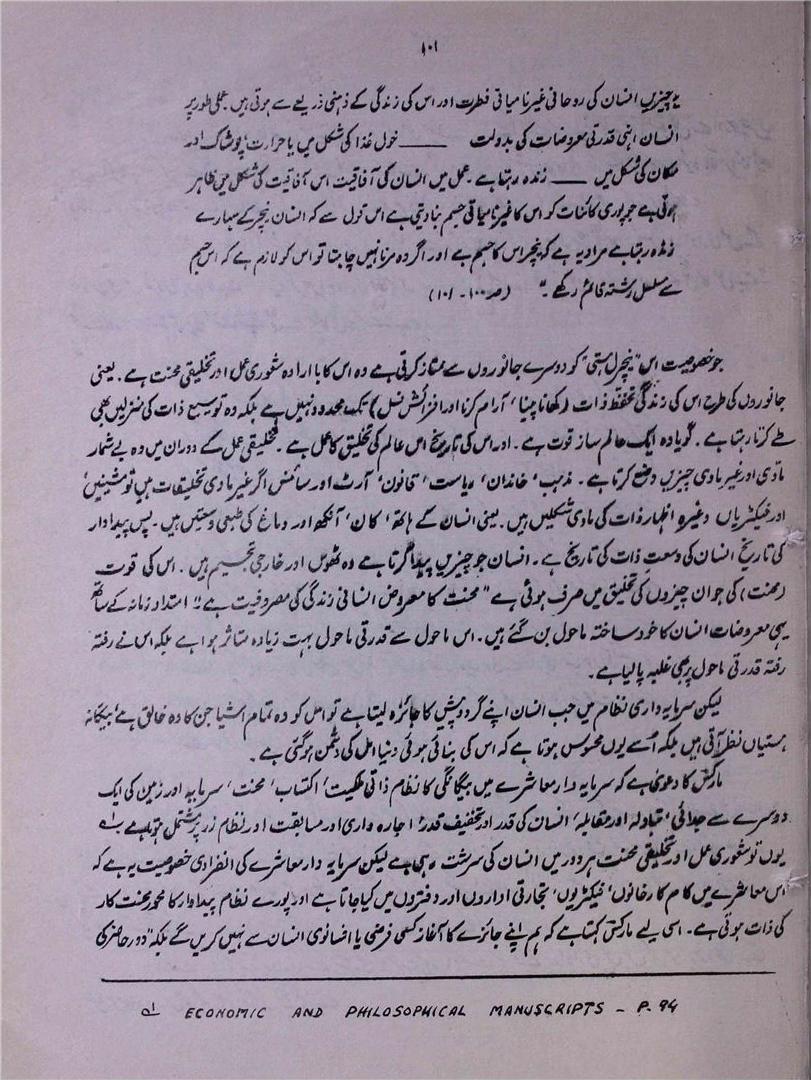 ۱۰۱
یہ چیزیں انسان کی روحانی غیر نامیاتی فطرت اور اس کی زندگی کے ذہنی ذریعے سے ہوتی ہیں۔ عملی طور پر
انسان اپنی قدرتی معروضات کی بدولت ——— خواہ غذا کی شکل میں یا حرارت، پوشاک اور
مکان کی شکل میں —— زندہ رہتا ہے۔ عمل میں انسان کی آفاقیت اس آفاقیت کی شکل میں ظاہر
ہوتی ہے جو پوری کائنات کو اس کا غیر نامیاتی جسم بنا دیتی ہے اس قول سے کہ انسان نیچر کے سہارے
زندہ رہتا ہے مراد یہ ہے کہ نیچر اس کا جسم ہے اور اگر وہ مرنا نہیں چاہتا تو اس کو لازم ہے کہ اس جسم
سے مسلسل رشتہ قائم رکھے۔" (صہ ۱۰۰ - ۱۰۱)
جو خصوصیت اس "نیچرل ہستی" کو دوسرے جانوروں سے ممتاز کرتی ہے وہ اس کا بااراده شعوری عمل اور تخلیقی محنت ہے۔ یعنی
جانوروں کی طرح اس کی زندگی تحفظ ذات (کھانا پینا، آرام کرنا اور افزائش نسل) تک محدود نہیں ہے بلکہ وہ توسیع ذات کی منزلیں بھی
طے کرتا رہتا ہے۔ گویا وہ ایک عالم ساز قوت ہے۔ اور اس کی تاریخ اس عالم کی تخلیق کا عمل ہے۔ تخلیقی عمل کے دوران میں وہ بے شمار
مادی اور غیر مادی چیزیں وضع کرتا ہے۔ مذہب، خاندان، ریاست، قانون، آرٹ اور سائنس اگر غیر مادی تخلیقات ہیں تو مشینیں
اور فیکٹریاں وغیرہ اظہار ذات کی مادی شکلیں ہیں۔ یعنی انسان کے ہاتھ، کان، آنکھ اور دماغ کی طبعی وسعتیں ہیں۔ پس پیداوار
کی تاریخ انسان کی وسعت ذات کی تاریخ ہے۔ انسان جو چیزیں پیدا کرتا ہے وہ ٹھوس اور خارجی تجسیم ہیں۔ اس کی قوت
(محنت) کی جو ان چیزوں کی تخلیق میں صرف ہوئی ہے "محنت کا معروض انسانی زندگی کی معروضیت ہے۔" امتداد زمانہ کے ساتھ
یہی معروضات انسان کا خود ساختہ ماحول بن گئے ہیں۔ اس ماحول سے قدرتی ماحول بہت زیادہ متاثر ہوا ہے بلکہ اس نے رفتہ
رفتہ قدرتی ماحول پر بھی غلبہ پا لیا ہے۔
لیکن سرمایہ داری نظام میں جب انسان اپنے گرد و پیش کا جائزہ لیتا ہے تو اس کو وہ تمام اشیا جن کا وہ خالق ہے، بیگانہ
ہستیاں نظر آتی ہیں بلکہ اُسے یوں محسوس ہوتا ہے کہ اس کی بنائی ہوئی دنیا اس کی دشمن ہو گئی ہے۔
مارکس کا دعویٰ ہے کہ سرمایہ دار معاشرے میں بیگانگی کا نظام ذاتی ملکیت، اکتساب، محنت، سرمایہ اور زمین کی ایک
دوسرے سے جدائی، تبادلہ اور مقابلہ، انسان کی قدر اور تخفیف قدر، اجارہ داری اور مسابقت اور نظام زر پر مشتمل ہوتا ہے لہ
یوں تو شعوری عمل اور تخلیقی محنت ہر دور میں انسان کی سرشت رہی ہے لیکن سرمایہ دار معاشرے کی انفرادی خصوصیت یہ ہے کہ
اس معاشرے میں کام کارخانوں، فیکٹریوں، تجارتی اداروں اور دفتروں میں کیا جاتا ہے اور پورے نظام پیداوار کا محور محنت کار
کی ذات ہوتی ہے۔ اسی لیے مارکس کہتا ہے کہ ہم اپنے جائزے کا آغاز کسی فرضی یا افسانوی انسان سے نہیں کریں گے بلکہ "دور حاضر کی
لہ ECONOMIC AND PHILOSOPHICAL MANUSCRIPTS - P. 94